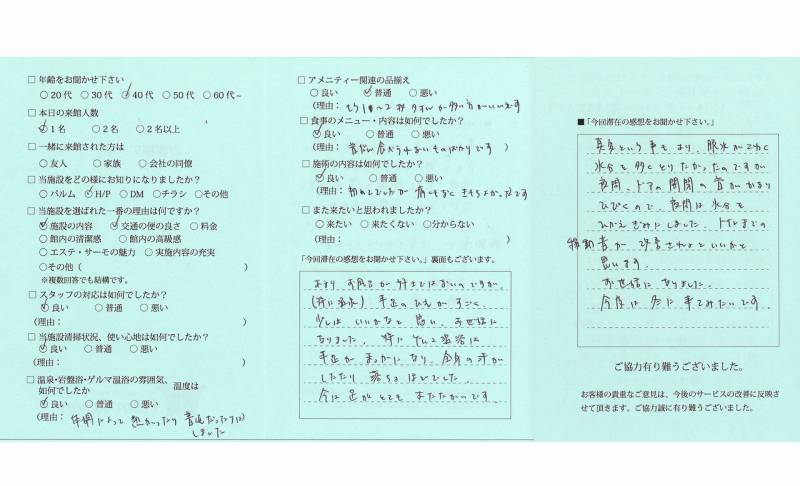 □ 年齢をお聞かせ下さい
○20代 ○30代 ○40代 ○50代 ○60代~
□ 本日の来館人数
○1名 ○2名 ○2名以上
□ 一緒に来館された方は
○友人 ○家族 ○会社の同僚
□ 当施設をどの様にお知りになりましたか?
○パルム ○H/P ○DM ○チラシ ○その他
□ 当施設を選ばれた一番の理由は何ですか?
○施設の内容 ○交通の便の良さ ○料金
○館内の清潔感 ○館内の高級感
○エステ・サーモの魅力 ○実施内容の充実
○その他( )
※複数回答でも結構です。
□ スタッフの対応は如何でしたか?
○良い ○普通 ○悪い
(理由: )
□ 当施設清掃状況、使い心地は如何でしたか?
○良い ○普通 ○悪い
(理由: )
□ 温泉・岩盤浴・ゲルマ温浴の雰囲気、温度は
如何でしたか
○良い ○普通 ○悪い
(理由: 体調によって熱かったり普通だったりは
しました
□ アメニティー関連の品揃え
○良い ○普通 ○悪い
(理由: もう1〜2
□ 食事のメニュー・内容は如何でしたか?
○良い ○普通 ○悪い
(理由: 普段食べれないものばかりです )
□ 施術の内容は如何でしたか?
○良い ○普通 ○悪い
(理由: 初めてでしたが 痛いもなく きもちよかったです
□ また来たいと思われましたか?
○来たい ○来たくない ○分からない
(理由: )
「今回滞在の感想をお聞かせ下さい。」裏面もございます。
あまり、お風呂が好きではないのですが、
(特に温泉) 手足のひえがすごく、
少しは いいかなと 思い、お世話に
なりました。特に ゲルマ温浴に
手足が まっかになり、全身の汗が
したたり 落ちる ほどでした。
今は 足がとても あたたかいです。
■「今回滞在の感想をお聞かせ下さい。」
真夏という 事もあり、脱水がこわく
水分を 多くとりたかったのですが
夜間、ドアの開閉の音がかなり
ひびくので、夜間は 水分を
ひかえぎみにしました。トイレまでの
移動音が 改善されるといいかと
思います。
お世話になりました。
今度は 冬に 来てみたいです。
ご協力有り難うございました。
お客様の貴重なご意見は、今後のサービスの改善に反映さ
せて頂きます。ご協力誠に有り難うございました。